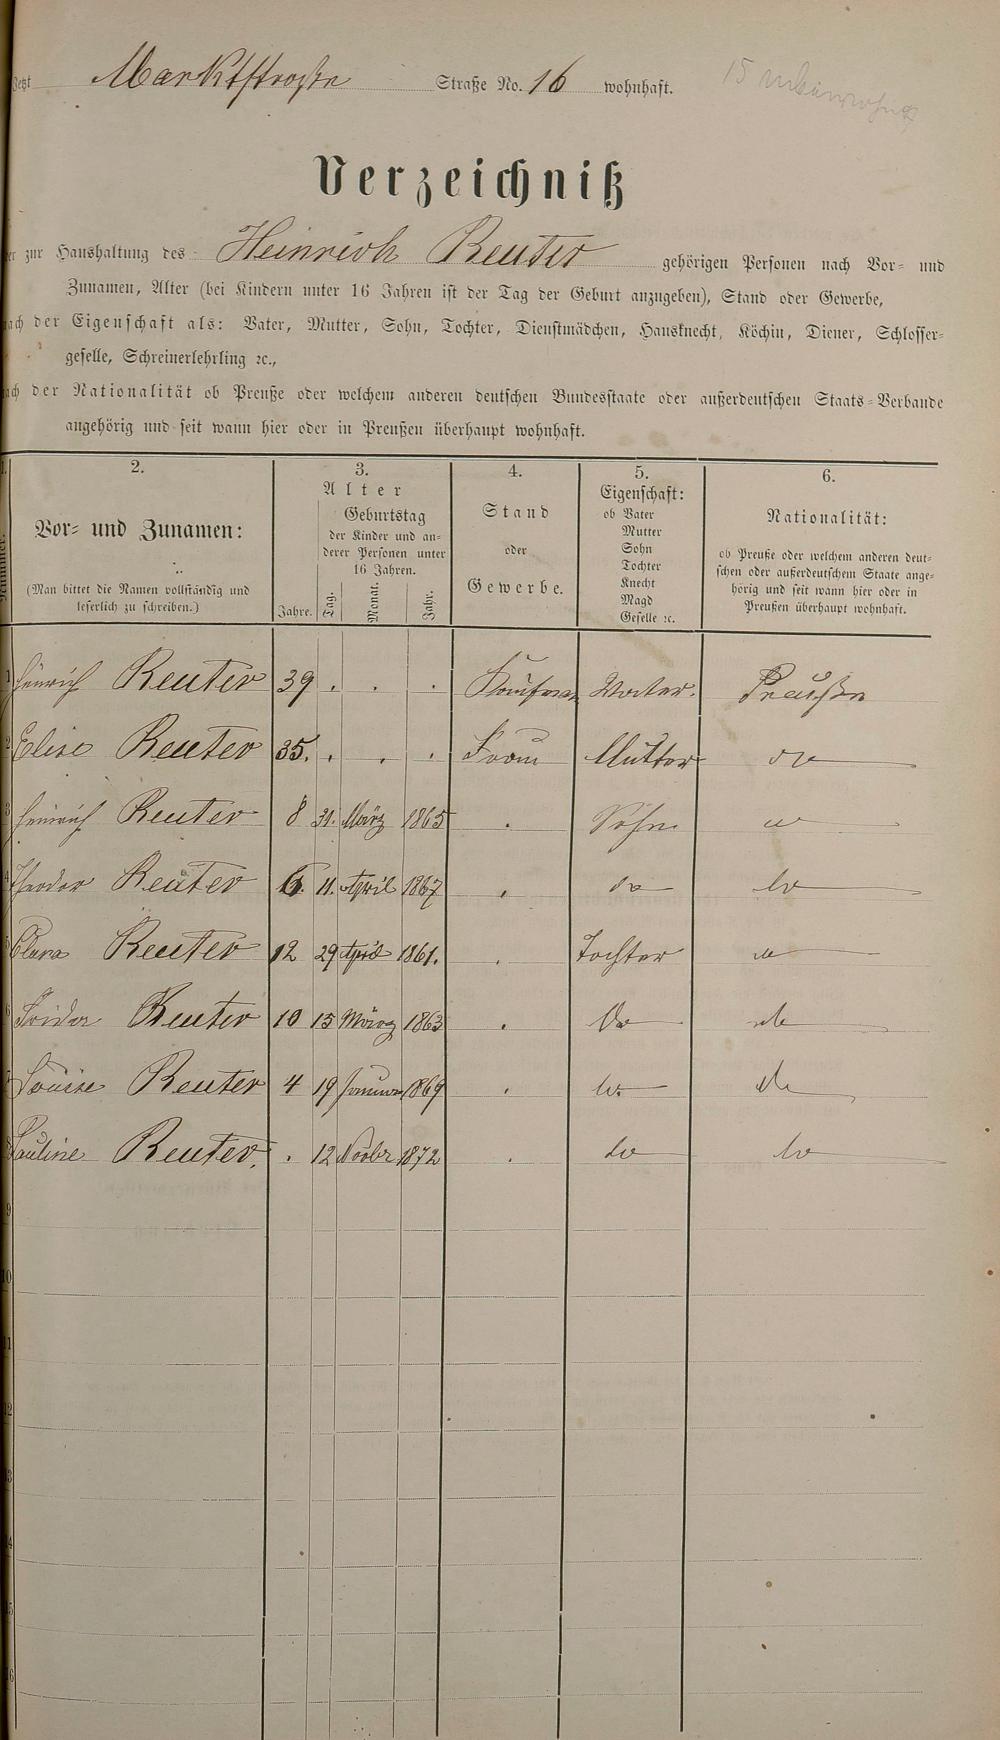 Jetzt Marktstraße Straße No. 16 wohnhaft. 15
Verzeichniß
zur Haushaltung des Heinrich Reuter gehörigen Personen nach Vor- und
Zunamen, Alter (bei Kindern unter 16 Jahren ist der Tag der Geburt anzugeben), Stand oder Gewerbe,
nach der Eigenschaft als: Vater, Mutter, Sohn, Tochter, Dienstmädchen, Hausknecht, Köchin, Diener, Schlosser-
geselle, Schreinerlehrling ꝛc.,
nach der Nationalität ob Preuße oder welchem anderen deutschen Bundesstaate oder außerdeutschen Staats-Verbande
angehörig und seit wann hier oder in Preußen überhaupt wohnhaft.
1. 2. 3. 4. 5. 6.
Nummer.
Vor- und Zunamen:
(Man bittet die Namen vollständig und
leserlich zu schreiben.)
Alter
Geburtstag
der Kinder und an-
derer Personen unter
16 Jahren.
Jahre. Tag. Monat. Jahr.
Stand
oder
Gewerbe.
Eigenschaft:
ob Vater
Mutter
Sohn
Tochter
Knecht
Magd
Geselle ꝛc.
Nationalität:
ob Preuße oder welchem anderen deut-
schen oder außerdeutschem Staate ange-
hörig und seit wann hier oder in
Preußen überhaupt wohnhaft.
1 Heinrich Reuter 39 . . . Kaufman Vater. Preuße
2 Elise Reuter 35. . . . Frau Mutter do
3 Heinrich Reuter 8 31. März 1865 . Sohn do
4 Theodor Reuter 6. 11. April 1867 . do do
5 Clara Reuter 12 29 April 1861. . Tochter do
6 Frida Reuter 10 15 März 1863 . do do
7 Louise Reuter 4 19 Januar 1869 . do do
8 Pauline Reuter. . 12 Novbr 1872 . do do
9
10
11
12
13
14
15
16